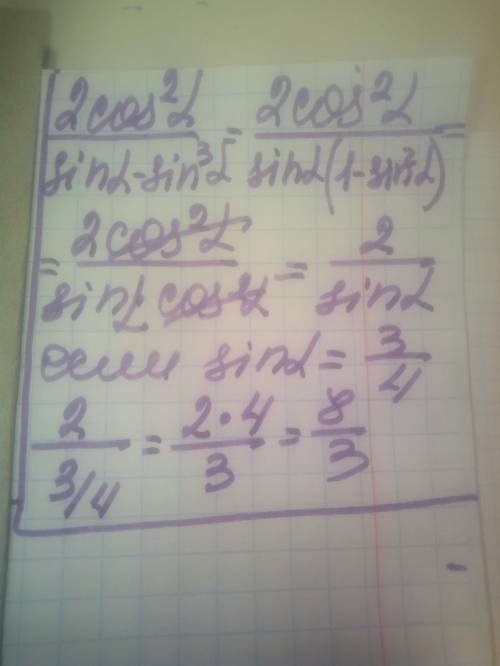 2cos²α / sinα-sin³α = 2cos²α / sinα(1-sin²α) =
= 2cos²α / sinα cos²α = 2 / sinα
если sinα = 3/4
2 / 3/4 = 2·4 / 3 = 8/3